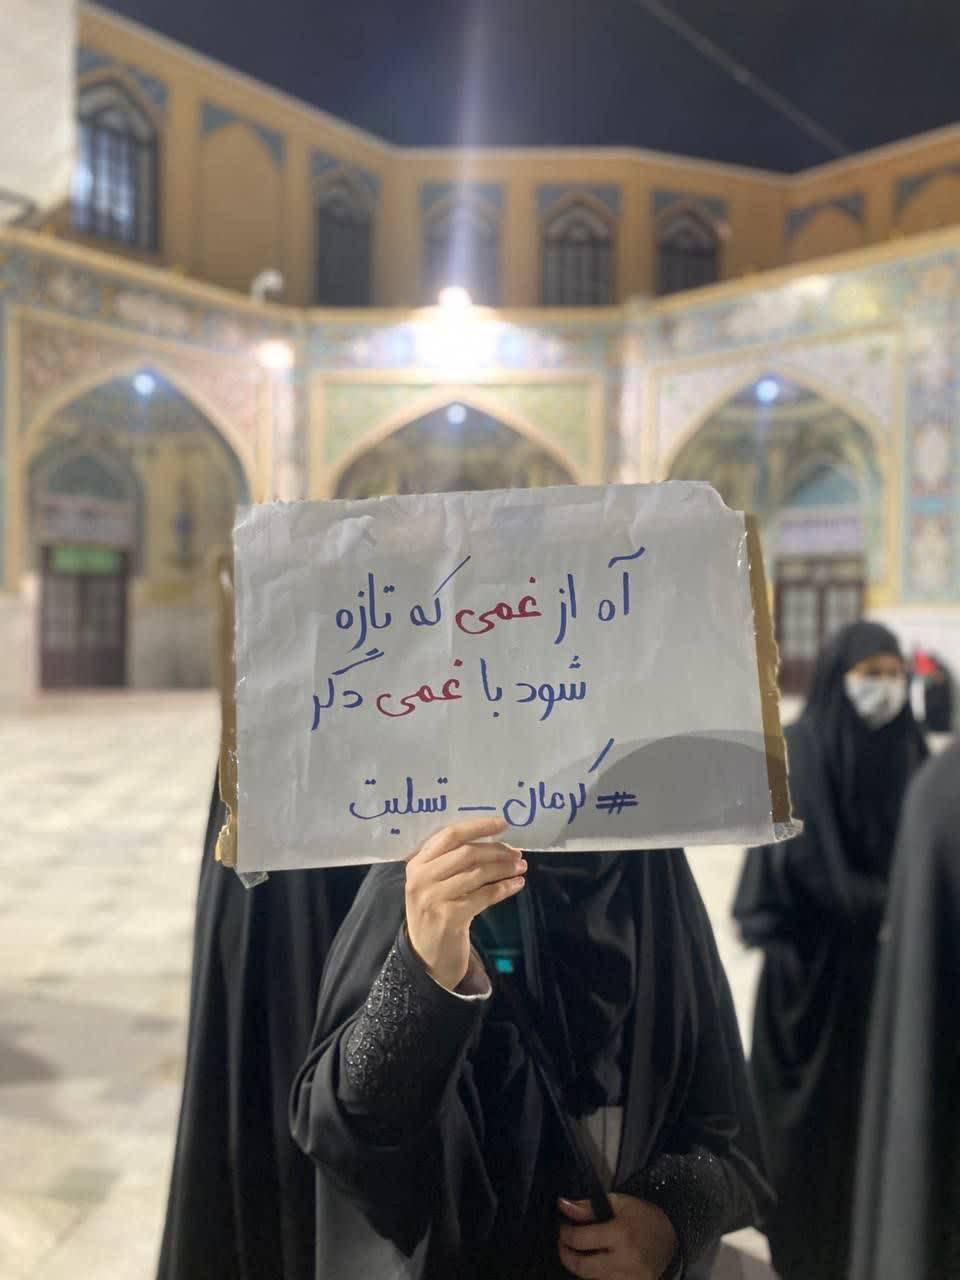 آه از غمی که تازه
شود با غمی دگر
#کرمان_تسلیت